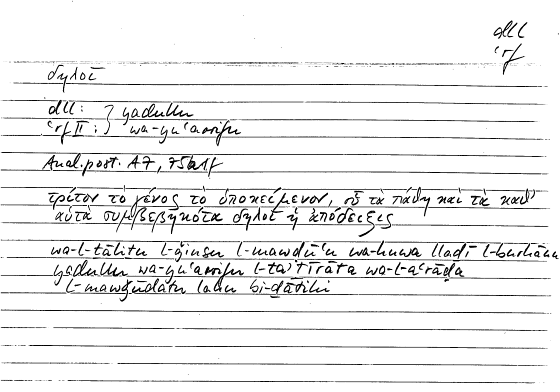 dll
ʿrf
δηλοῖ
dll: } yadullu
ʿrf II: } wa-yuʿarrifu
Anal. post. A7, 75b1f
τρίτον τὸ γένος τὸ ὑποκείμενον, οὗ τὰ πάθη καὶ τὰ καθ'
αὑτὰ συμβεβηκότα δηλοῖ ἡ ἀπόδειξις
wa-l-ṯāliṯu l-ǧinsu l-mawḍūʿu wa-huwa llaḏī l-burhānu
yadullu wa-yuʿarrifu l-taʾṯīrāta wa-l-aʿrāḍa
l-mawǧūdata lahu bi-ḏātihi